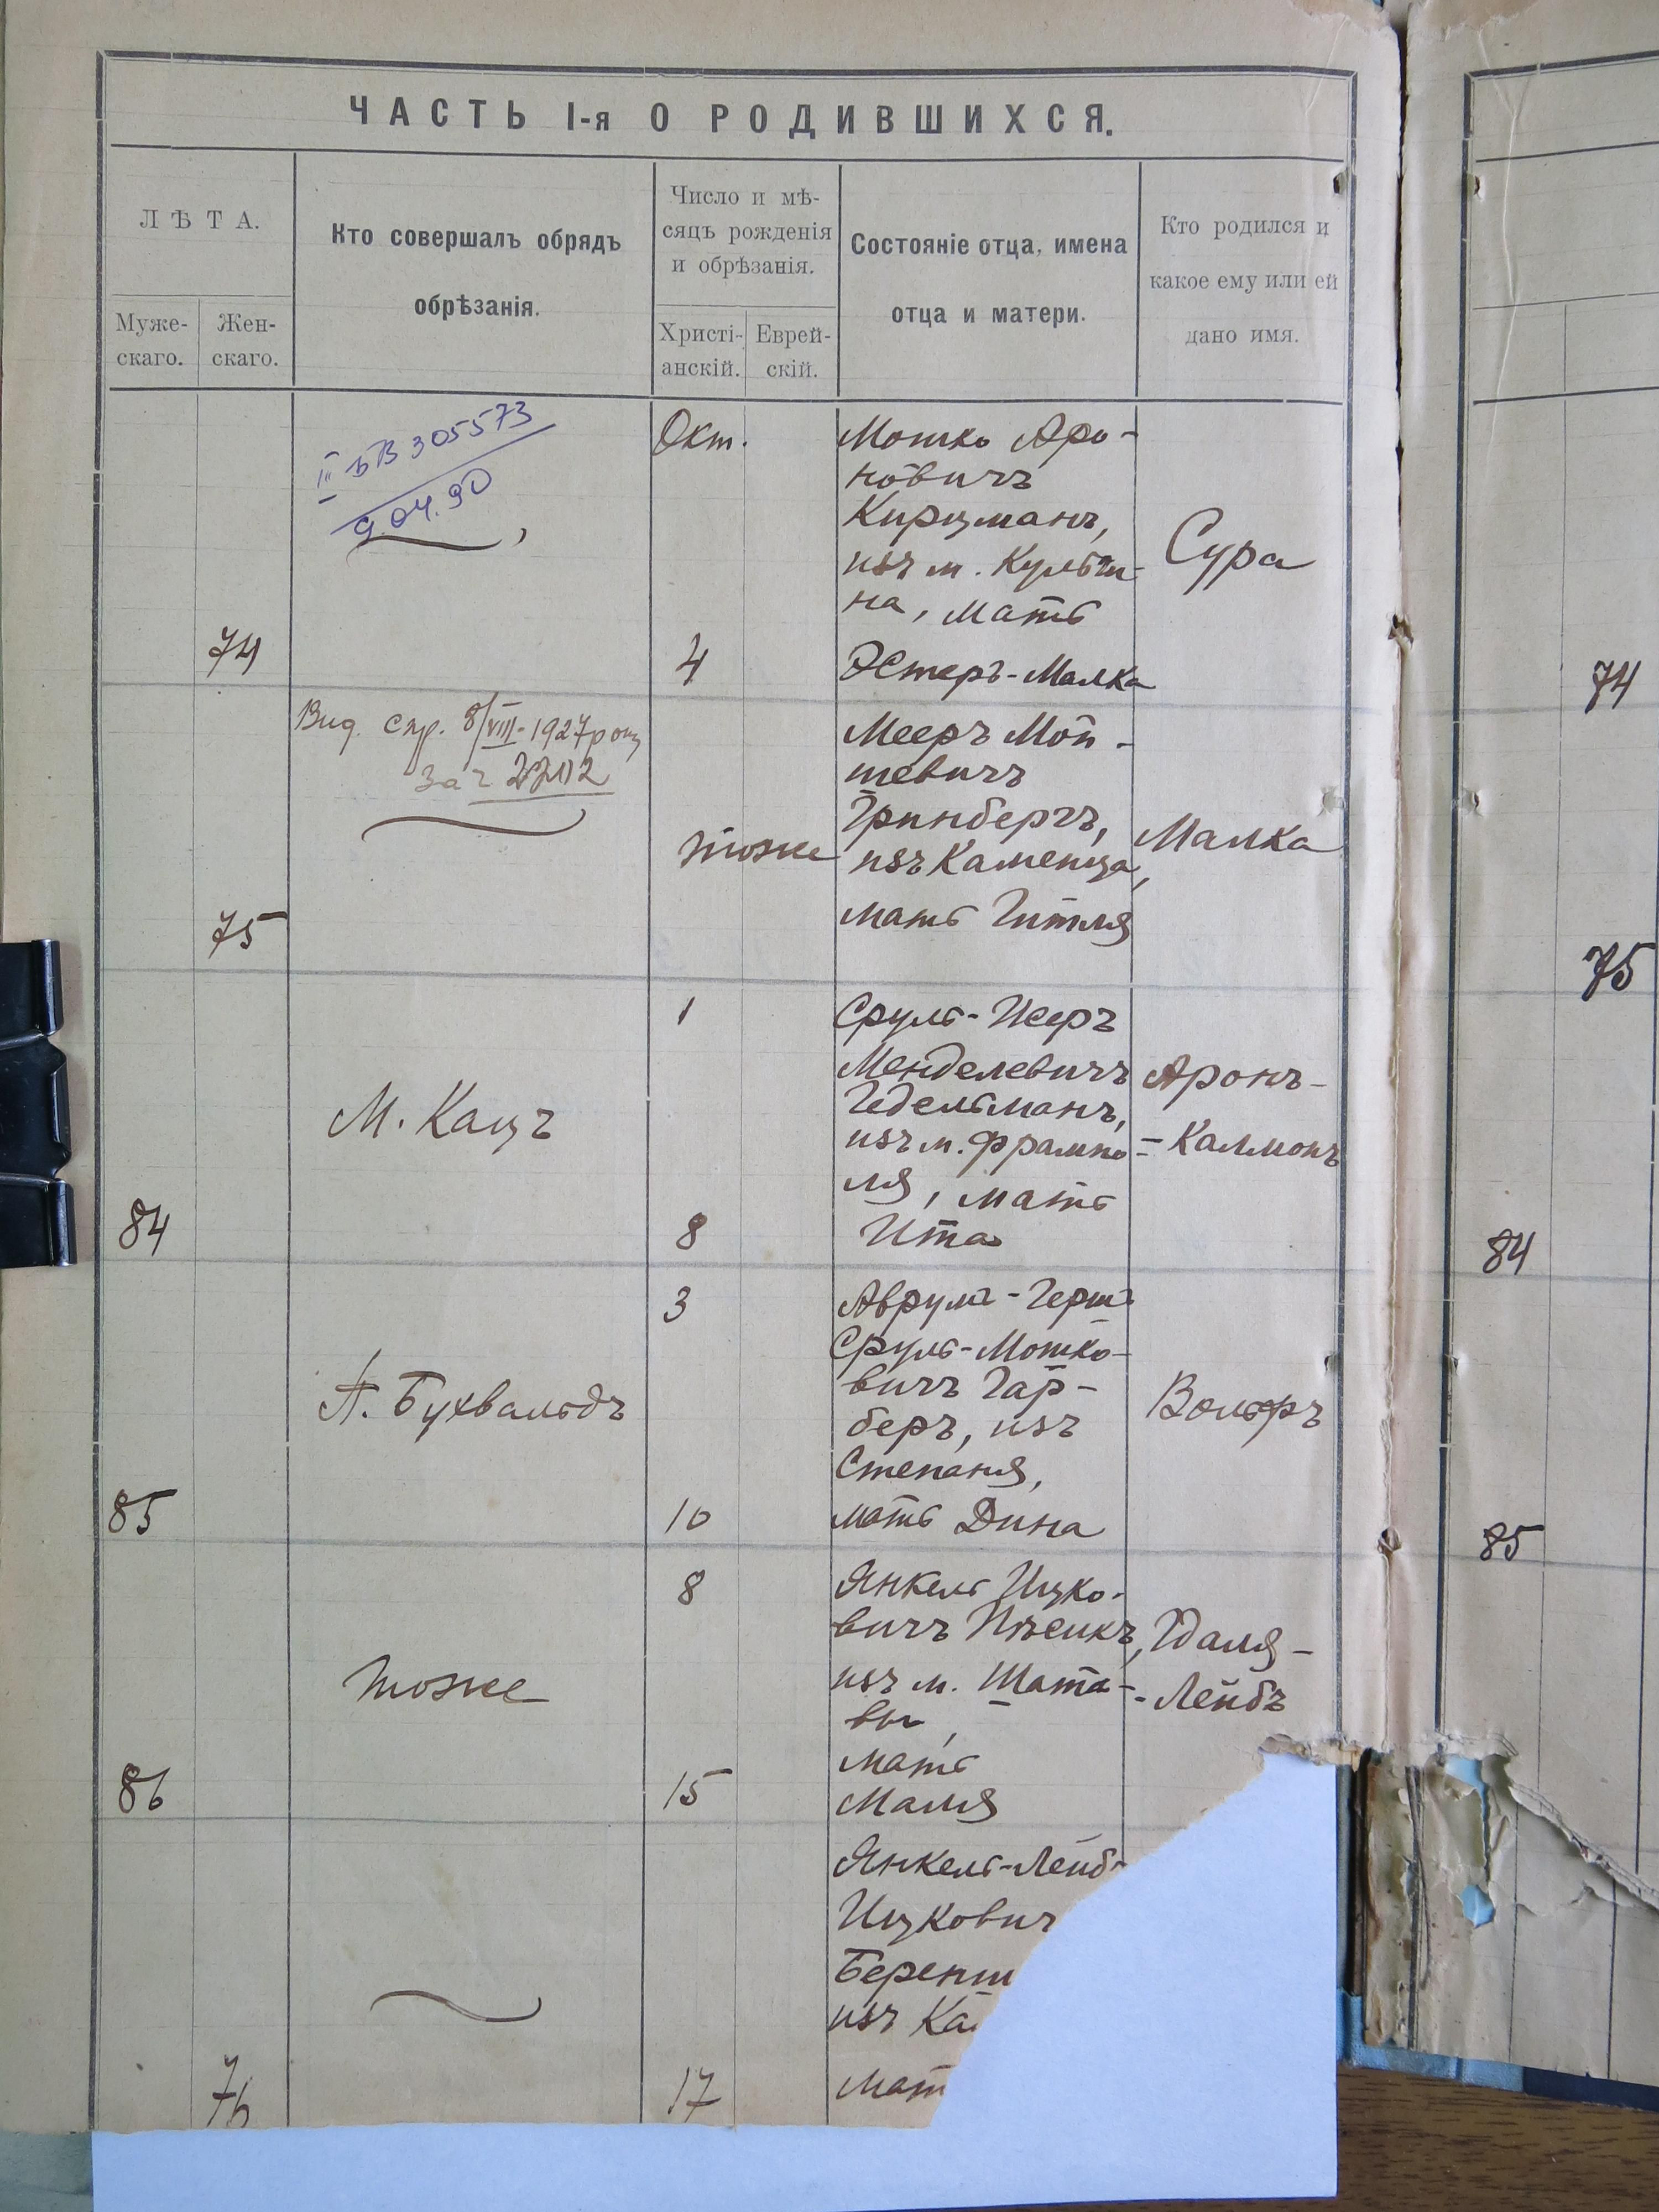 ЧАСТЬ I-я О РОДИВШИХСЯ.
ЛѢТА.
Муже-
скаго.
Жен-
скаго.
Кто совершалъ обрядъ
обрѣзанія.
Число и мѣ-
сяцъ рожденія
и обрѣзанія.
Христі-
анскій.
Еврей-
скій.
Состояніе отца, имена
отца и матери.
Кто родился и
какое ему или ей
дано имя.
74
III БВ 305573
9.04.90
Окт.
4
Мошко Аро-
новичъ
Кирцманъ,
изъ м. Кульчи-
на, мать
Эстеръ-Малка
Сура
74
75
Вид. спр. 8/VIII-1927 року
за ч 2202
тоже
Мееръ Мой-
шевичъ
Гринбергъ,
изъ Каменца,
мать Гитля
Малка
75
84
М. Кацъ
1
8
Сруль-Исеръ
Менделевичъ
Гедельманъ,
изъ м. Фрампо-
ля, мать
Ита
Аронъ-
-Калмонъ
84
85
П. Бухвальдъ
3
10
Аврумъ-Гершъ
Сруль-Мошко-
вичъ Гар-
беръ, изъ
Степаня,
мать Дина
Вольфъ
85
86
тоже
8
15
Янкель Ицко-
вичъ
изъ м. Шата-
вы,
мать
Маля
Гдаля-
-Лейбъ
76
17
Янкель-Лейбъ
Ицкович
Беренш
изъ Ка
мат